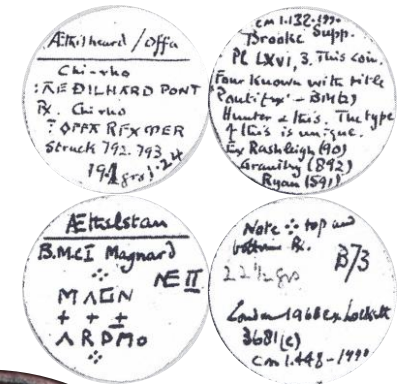 Æthilheard / Offa
Chi-rho
: ÆDILHARD PONT
R. Chi rho
: OFFA REX MER
Struck 792-793
CM 1.132-1990
Brooke Supp.
Pl LXVI, 3. This coin.
Four known with title
"Pontifex" - BM(2)
Hunter & this. The type
of this is unique.
Ex Rashleigh (90)
Grantley (892)
Ryan (591)
Æthelstan
B.M.C I Magnard
NE II
MAGN
+ + +
ARDMO
Note ⁘ top and
bottom R.
22½ grs B/3
London 1968 ex Lockett
3681(c)
CM 1.448-1990